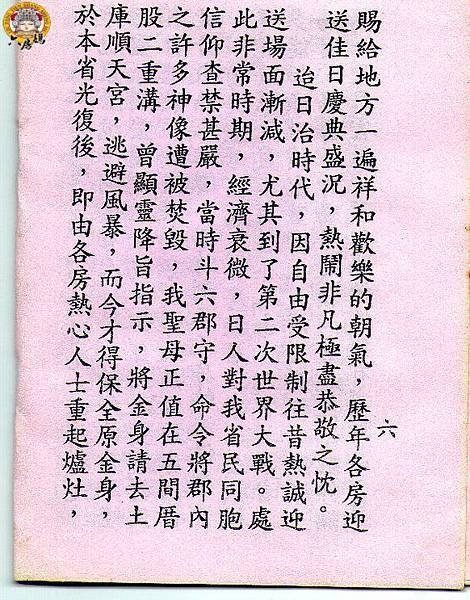 賜給地方一遍祥和歡樂的朝氣，歷年各房迎
送佳日慶典盛況，熱鬧非凡極盡恭敬之忱。
迨日治時代，因自由受限制往昔熱誠迎
送場面漸減，尤其到了第二次世界大戰。處
此非常時期，經濟衰微，日人對我省民同胞
信仰查禁甚嚴，當時斗六郡守，命令將郡內
之許多神像遭被焚毀，我聖母正值在五間厝
股二重溝，曾顯靈降旨指示，將金身請去土
庫順天宮，逃避風暴，而今才得保全原金身，
於本省光復後，即由各房熱心人士重起爐灶，
六
六房媽